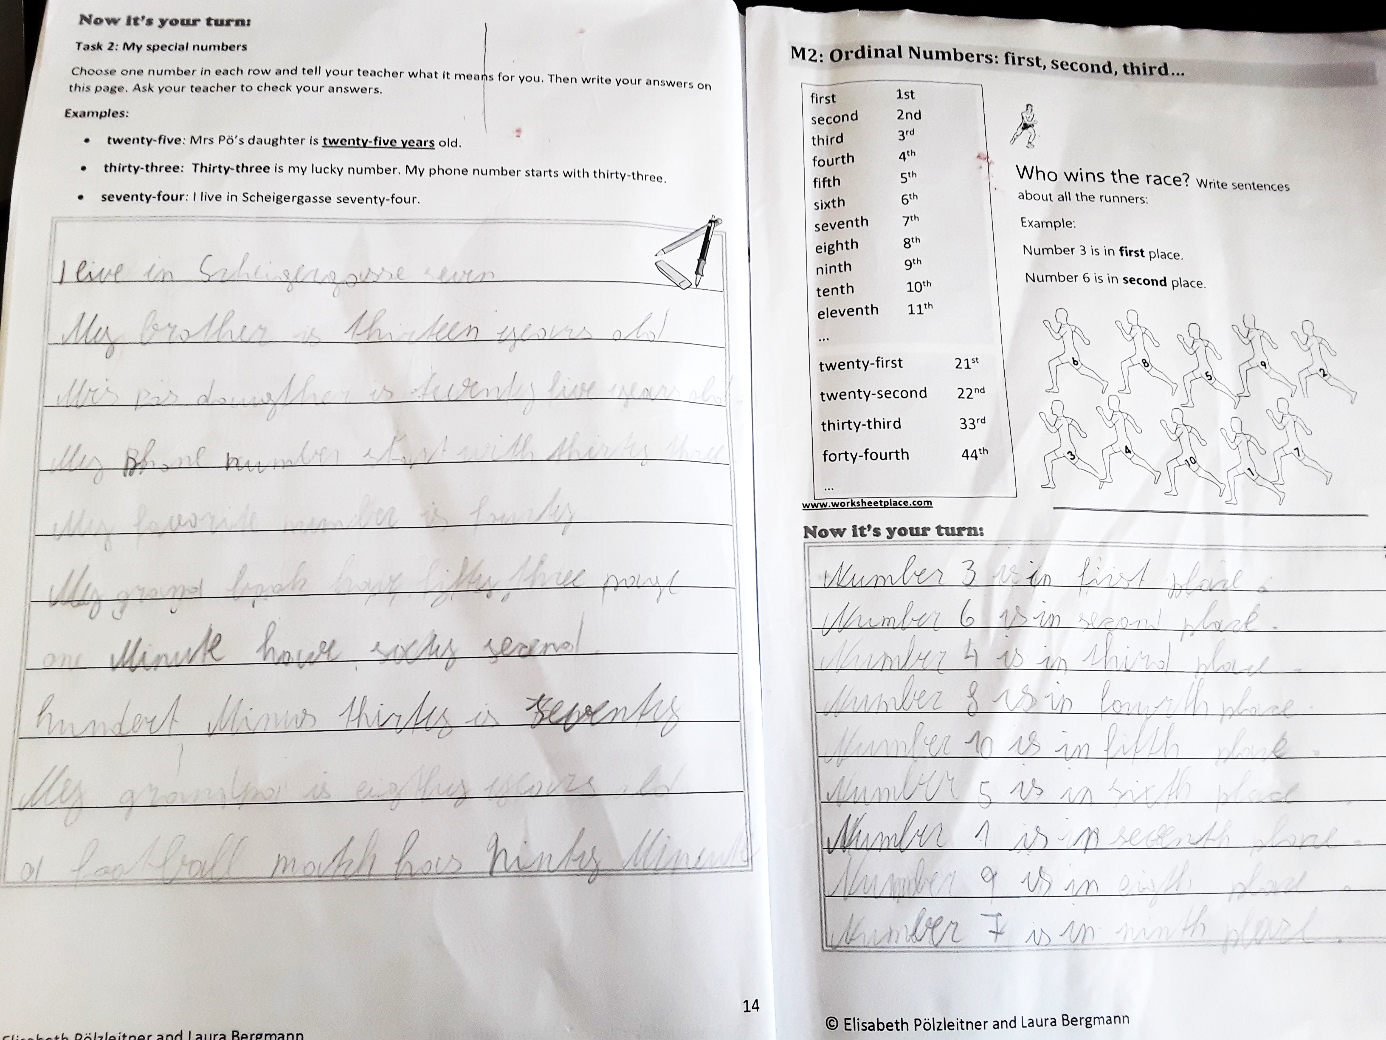 Now it's your turn:
Task 2: My special numbers
Choose one number in each row and tell your teacher what it means for you. Then write your answers on
this page. Ask your teacher to check your answers.
Examples:
• twenty-five: Mrs Pö's daughter is twenty-five years old.
• thirty-three: Thirty-three is my lucky number. My phone number starts with thirty-three.
• seventy-four: I live in Scheigergasse seventy-four.
I live in Scheigergasse seven
My brother is thirteen years old
Mris pös daugther is twenty five years old
My phone number start with thirty three
My favorite number is fourty
My grand book have fifty three page
one Minute have sixty second
hundert Minus thirty is seventy
My grandpa is eigthy years old
a foot ball match has ninty Minute
14
Elisabeth Pölzleitner and Laura Bergmann
M2: Ordinal Numbers: first, second, third...
first 1st
second 2nd
third 3rd
fourth 4th
fifth 5th
sixth 6th
seventh 7th
eighth 8th
ninth 9th
tenth 10th
eleventh 11th
...
twenty-first 21st
twenty-second 22nd
thirty-third 33rd
forty-fourth 44th
...
www.worksheetplace.com
Who wins the race? Write sentences
about all the runners:
Example:
Number 3 is in first place.
Number 6 is in second place.
6 8 5 9 2
3 4 10 1 7
Now it's your turn:
Number 3 is in first place.
Number 6 is in second place.
Number 4 is in third place.
Number 8 is in fourth place.
Number 10 is in fifth place.
Number 5 is in sixth place
Number 1 is in seventh place.
Number 9 is in eigth place.
Number 7 is in ninth place.
© Elisabeth Pölzleitner and Laura Bergmann